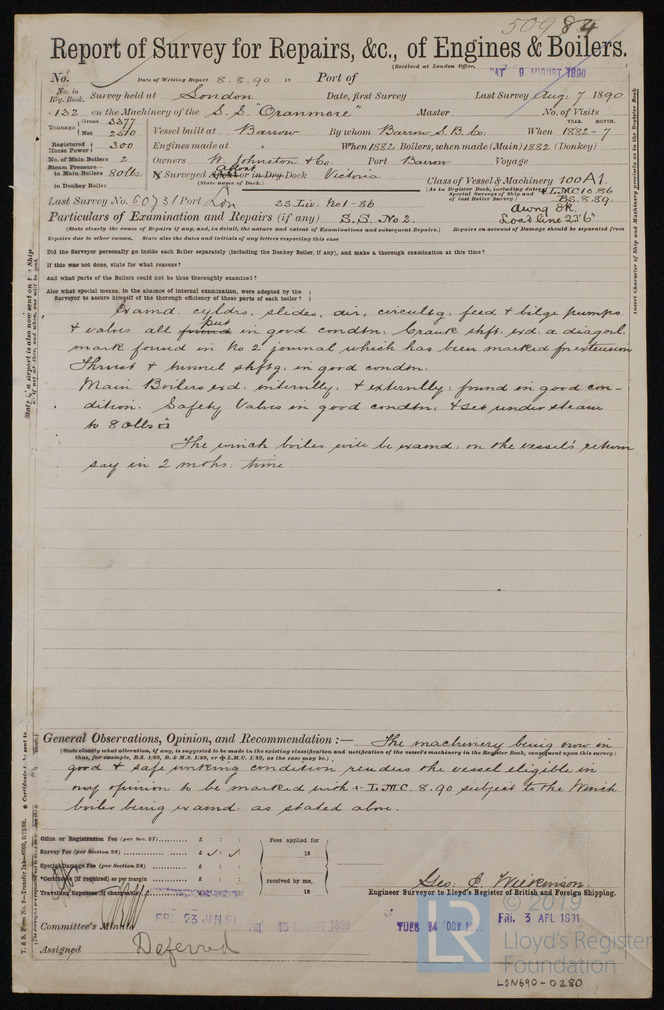 50984
Report of Survey for Repairs, &c., of Engines & Boilers.
(Received at London Office, SAT 9 AUGUST 1890
No. Date of Writing Report 8.8.90 Port of
No. in Reg. Book. Survey held at London Date, first Survey Last Survey Aug: 7 1890
132 on the Machinery of the S.S. "Oranmore" Master No. of Visits
Tonnage Gross 3377 Net 2510 Vessel built at Barrow By whom Barrow S.B.Co. When 1882-7
YEAR. MONTH.
Registered Horse Power 300 Engines made at " When 1882 Boilers, when made (Main) 1882 (Donkey)
No. of Main Boilers 2 Owners W. Johnston & Co. Port Barrow Voyage
Steam Pressure in Main Boilers 80lbs. Surveyed Afloat or in Dry Dock Victoria Class of Vessel & Machinery 100A1.
in Donkey Boiler (State name of Dock.) (As in Register Book, including dates of Special Surveys of Ship and of last Boiler Survey) + LMC 10.86
BS. 8.89.
Last Survey No. 50731 Port Lon SS Liv: No1-86 Awng DK.
Particulars of Examination and Repairs (if any) S.S. No 2. Load line 23'6"
(State clearly the cause of Repairs if any, and, in detail, the nature and extent of Examinations and subsequent Repairs.) Repairs on account of Damage should be separated from
Repairs due to other causes. State also the dates and initials of any letters respecting this case
Did the Surveyor personally go inside each Boiler separately (including the Donkey Boiler, if any), and make a thorough examination at this time?
If this was not done, state for what reasons?
And what parts of the Boilers could not be thus thoroughly examined?
Also what special means, in the absence of internal examination, were adopted by the
Surveyor to assure himself of the thorough efficiency of those parts of each boiler?
Examd: cyldrs. slides, air, circultg: feed & bilge pumps
& valves all found put in good condtn: Crank shft: exd: a diagonl.
mark found in No 2 journal which has been marked for extension
Thrust & tunnel shftg: in good condtn:
Main Boilers exd: internlly: & externlly: found in good con-
dition. Safety Valves in good condtn: & set under steam
to 80lbs □
The winch boiler will be examd: on the vessel's return
say in 2 mths: time.
General Observations, Opinion, and Recommendation:— The machinery being now in
(State clearly what alteration, if any, is suggested to be made in the existing classification and notification of the vessel's machinery in the Register Book, consequent upon this survey;
thus, for example, B.S. 1/89, B. & M.S. 1/89, or + L.M.C. 1/89, as the case may be.)
good & safe working condition renders the vessel eligible in
my opinion to be marked with + L.M.C. 8.90 subject to the Winch
boiler being examd: as stated above.
Office or Registration Fee (per Sec. 27) £ : : Fees applied for
Survey Fee (per Section 28) £ : : 18
Special Damage Fee (per Section 28) £ : :
*Certificate (if required) as per margin £ : : received by me,
Travelling Expenses (if chargeable) £ : : 18
Geo: Wilkinson
Engineer Surveyor to Lloyd's Register of British and Foreign Shipping.
Committee's Minute FRI. 23 JAN 91 FRI 15 AUGUST 1890 TUES 14 OCT 1890 FRI. 3 APL 1891
Assigned Deferred
© 2019
LR
Lloyd's Register
Foundation
LON690-0280
Insert Character of Ship and Machinery precisely as in the Register Book